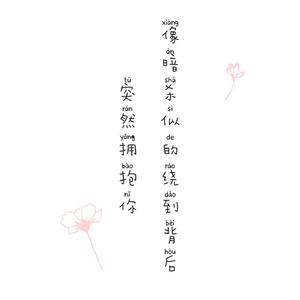 xiàng àn shā sì de rào dào bèi hòu
像暗杀似的绕到背后
tū rán yōng bào nǐ
突然拥抱你